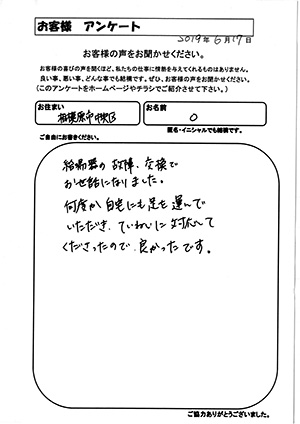 お客様 アンケート
2019年6月17日
お客様の声をお聞かせください。
お客様の喜びの声を聞くほど、私たちの仕事に情熱を与えてくれるものはありません。
良い事、悪い事、どんな事でも結構です。ぜひ、お客様の声をお聞かせください。
(このアンケートをホームページやチラシでご紹介させて下さい。)
お住まい お名前
相模原市中央区 O
匿名・イニシャルでも結構です。
ご自由にお書きください。
給湯器の故障、交換で
お世話になりました。
何度か自宅にも足を運んで
いただき、ていねいに対応して
くださったので良かったです。
ご協力ありがとうございました。